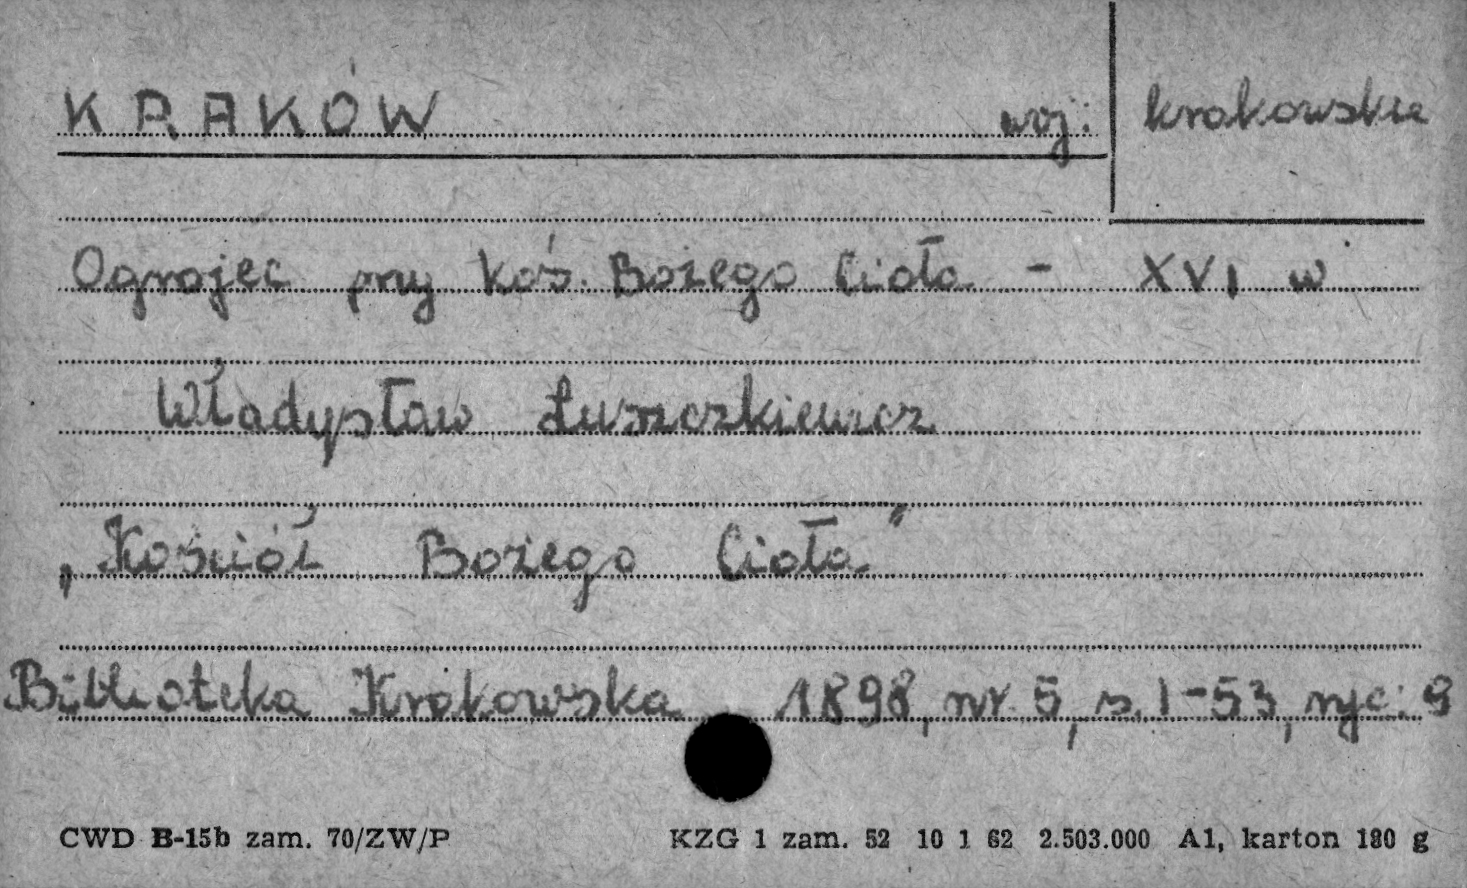 KRAKÓW woj: krakowskie
Ogrojec przy koś. Bożego Ciała - XVI w
Władysław Łuszczkiewicz
„Kościół Bożego Ciała”
Biblioteka Krakowska 1898, nr. 5, s. 1-53, ryc: 9
CWD B-15b zam. 70/ZW/P KZG 1 zam. 52 10 1 62 2.503.000 A1, karton 180 g